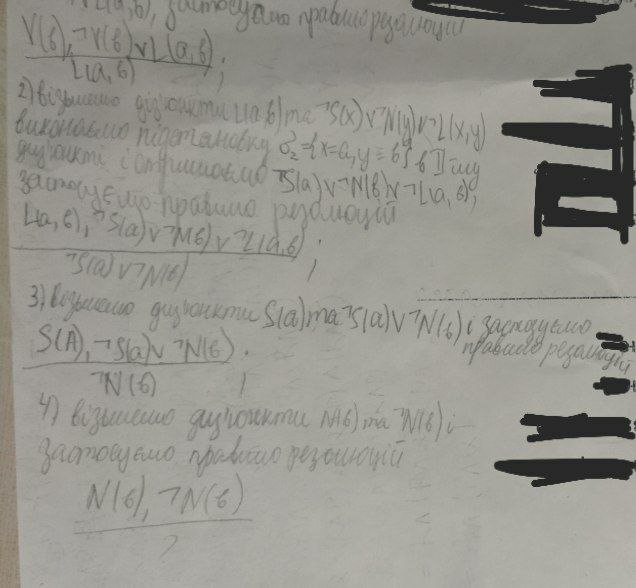 ∨L(a,b), застосуємо правило резолюцій
V(b), ¬V(b)∨L(a,b)
L(a,b) ;
2) візьмемо диз'юнкти L(a,b) та ¬S(x)∨¬N(y)∨¬L(x,y)
виконаємо підстановку σ₂={x=a, y=b} в II-му
диз'юнкті і отримаємо ¬S(a)∨¬N(b)∨¬L(a,b),
застосуємо правило резолюцій
L(a,b), ¬S(a)∨¬N(b)∨¬L(a,b) ;
¬S(a)∨¬N(b)
3) Візьмемо диз'юнкти S(a) та ¬S(a)∨¬N(b) і застосуємо
правило резолюцій
S(A), ¬S(a)∨¬N(b) .
¬N(b) ;
4) візьмемо диз'юнкти N(b) та ¬N(b) і
застосуємо правило резолюцій
N(b), ¬N(b)